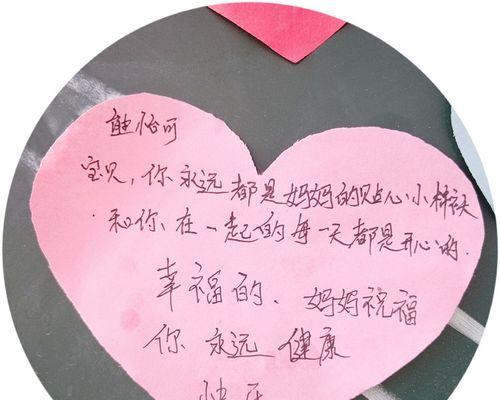 熊怡可
宝贝，你永远都是妈妈的贴心小棉袄
和你在一起的每一天都是开心的.
幸福的、妈妈祝福
你永远健康
快乐